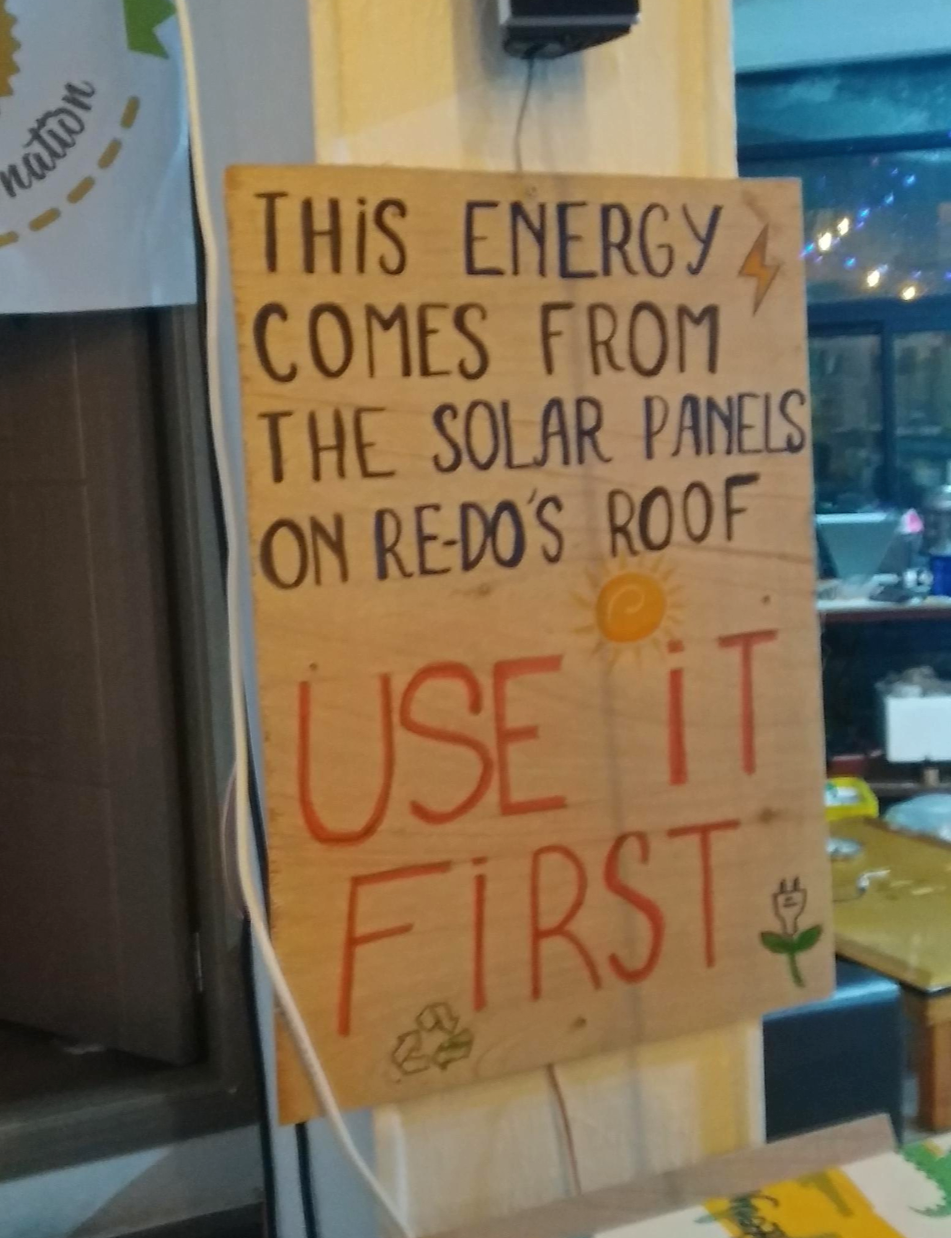 nation
THiS ENERGY
COMES FROM
THE SOLAR PANELS
ON RE-DO'S ROOF
USE iT
FiRST